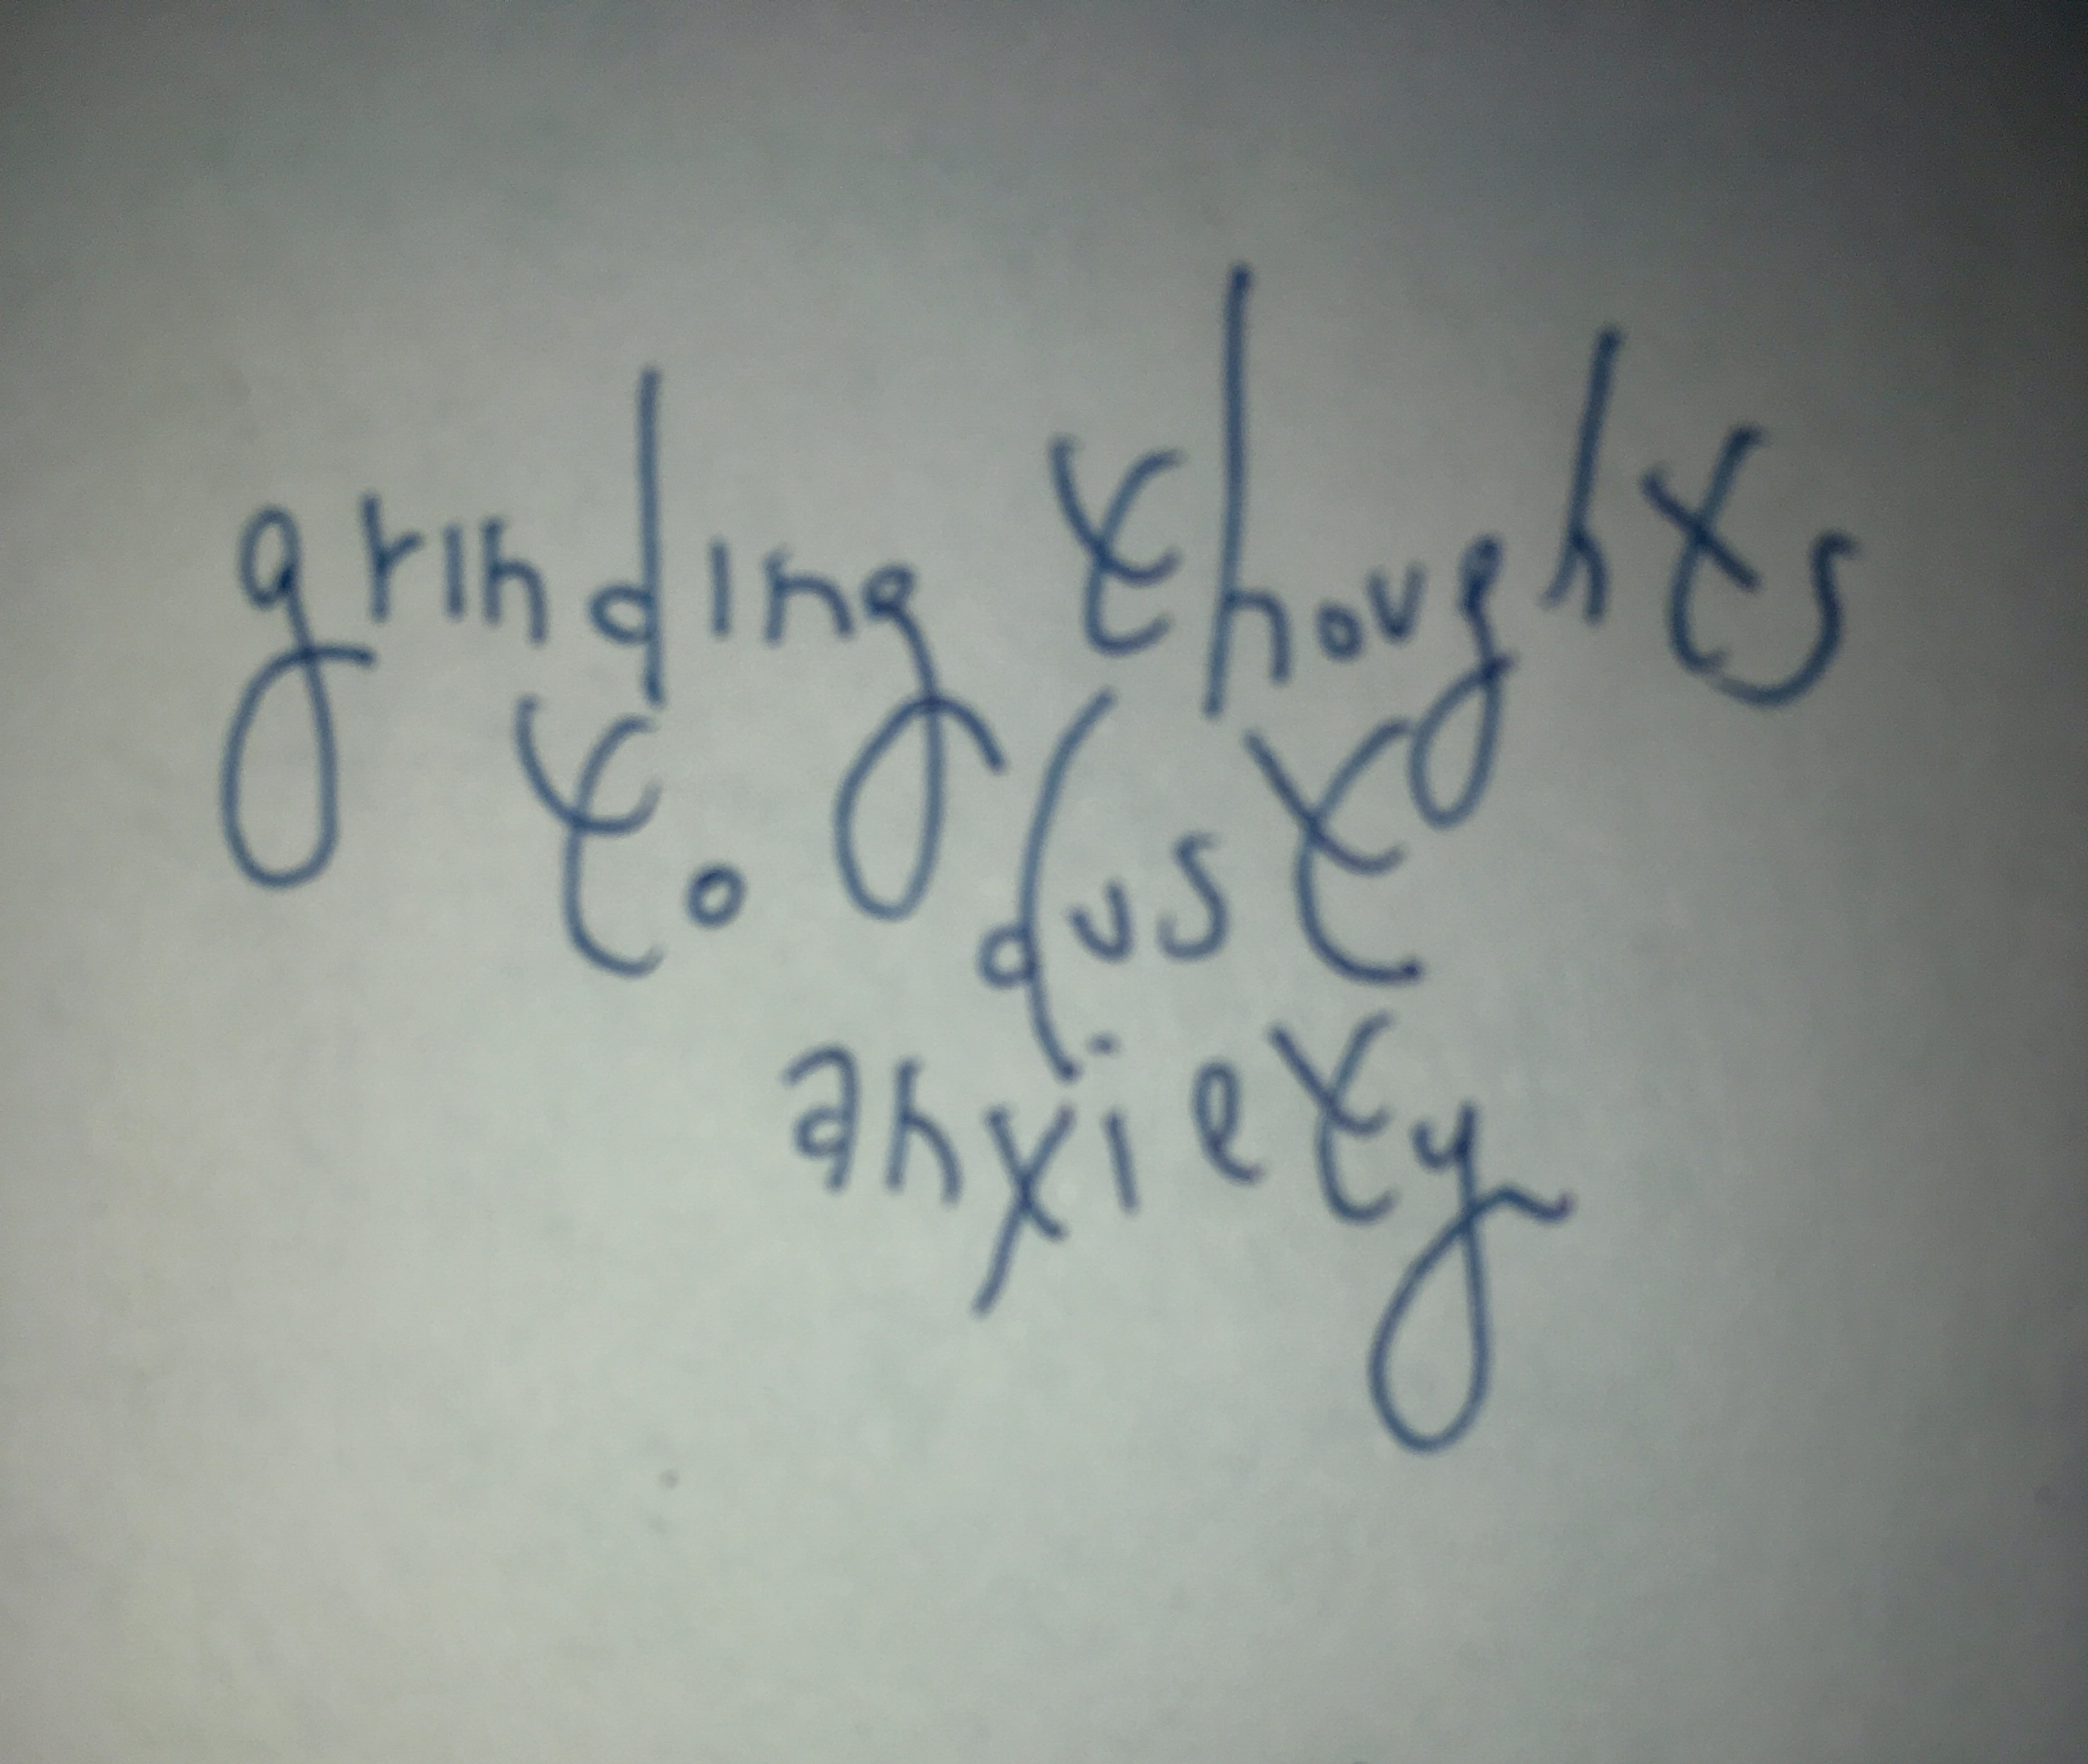 grinding thoughts
to dust
anxiety